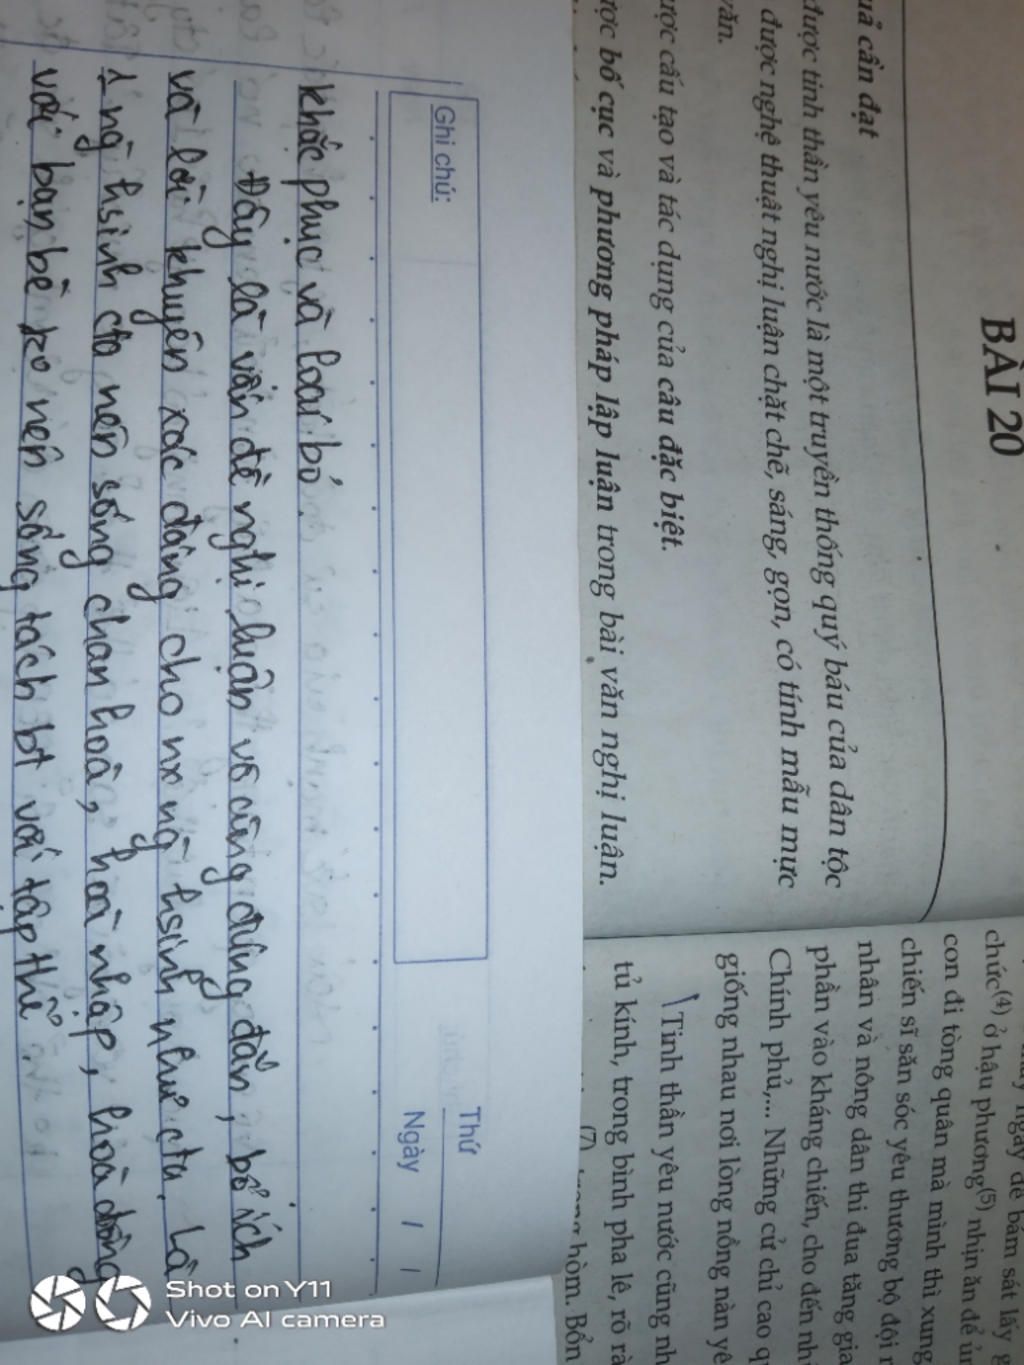 BÀI 20
uả cần đạt
được tinh thần yêu nước là một truyền thống quý báu của dân tộc
được nghệ thuật nghị luận chặt chẽ, sáng, gọn, có tính mẫu mực
văn.
ược cấu tạo và tác dụng của câu đặc biệt.
ược bố cục và phương pháp lập luận trong bài văn nghị luận.
ngày để bám sát lấy g
chức(4) ở hậu phương(5) nhịn ăn để ủ
con đi tòng quân mà mình thì xung
chiến sĩ săn sóc yêu thương bộ đội
nhân và nông dân thi đua tăng gia
phần vào kháng chiến, cho đến nh
Chính phủ,... Những cử chỉ cao q
giống nhau nơi lòng nồng nàn yê
Tinh thần yêu nước cũng nh
tủ kính, trong bình pha lê, rõ rà
(7) trong hòm. Bổn
Thứ
Ngày / /
Ghi chú:
khắc phục và loại bỏ.
Đây là vấn đề nghị luận vô cùng đúng đắn, bổ ích
và lời khuyên xác đáng cho nx ng hsinh như cta. Là
1 ng hsinh cta nên sống chan hoà, hoà nhập, hoà đồng
với bạn bè ko nên sống tách bt với tập thể.
Shot on Y11
Vivo AI camera